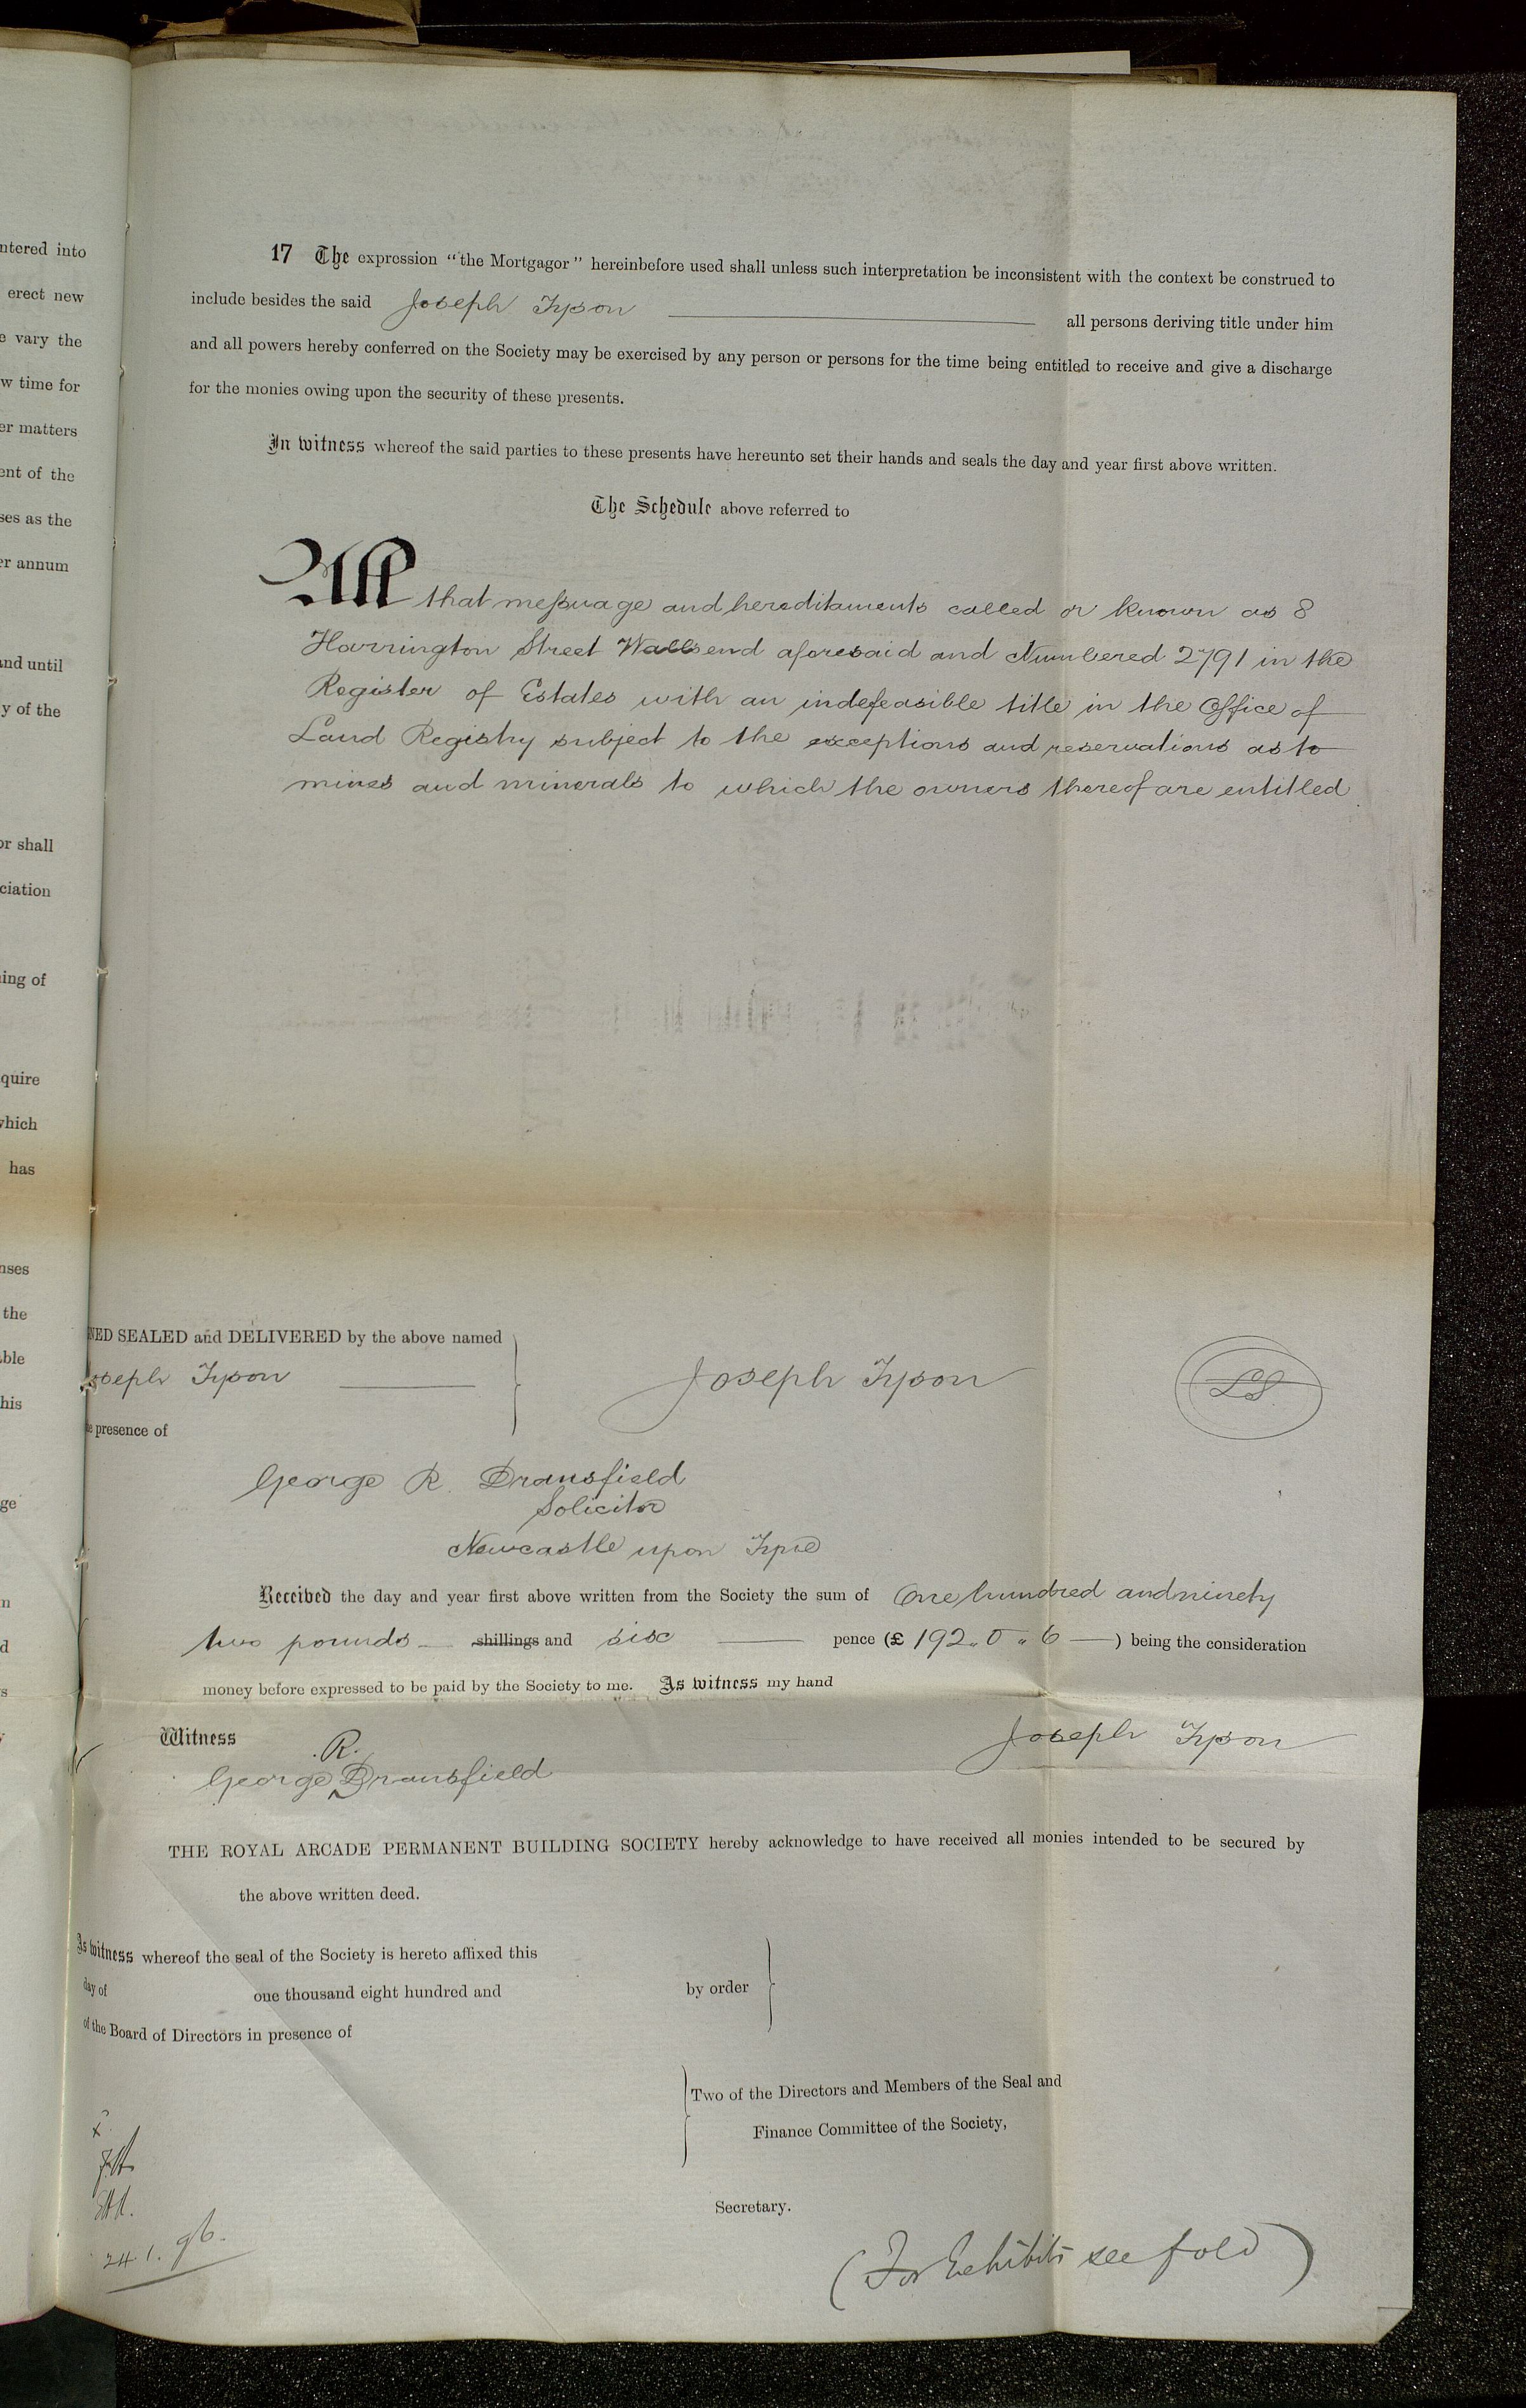 ntered into
erect new
e vary the
w time for
er matters
ent of the
ses as the
er annum
and until
y of the
or shall
ciation
ing of
quire
which
has
nses
the
able
his
ge
n
d
s
y
17 The expression "the Mortgagor" hereinbefore used shall unless such interpretation be inconsistent with the context be construed to
include besides the said Joseph Tyson all persons deriving title under him
and all powers hereby conferred on the Society may be exercised by any person or persons for the time being entitled to receive and give a discharge
for the monies owing upon the security of these presents.
In witness whereof the said parties to these presents have hereunto set their hands and seals the day and year first above written.
The Schedule above referred to
All that messuage and hereditaments called or known as 8
Harrington Street Wallsend aforesaid and Numbered 2791 in the
Register of Estates with an indefeasible title in the Office of
Land Registry subject to the exceptions and reservations as to
mines and minerals to which the owners thereof are entitled
NED SEALED and DELIVERED by the above named
oseph Tyson Joseph Tyson LS
e presence of
George R. Dransfield
Solicitor
Newcastle upon Tyne
Received the day and year first above written from the Society the sum of One hundred and ninety
two pounds — shillings and six — pence (£ 192 " 0 " 6 — ) being the consideration
money before expressed to be paid by the Society to me. As witness my hand
Witness Joseph Tyson
George R. Dransfield
THE ROYAL ARCADE PERMANENT BUILDING SOCIETY hereby acknowledge to have received all monies intended to be secured by
the above written deed.
As witness whereof the seal of the Society is hereto affixed this
day of one thousand eight hundred and by order
of the Board of Directors in presence of
Two of the Directors and Members of the Seal and
Finance Committee of the Society,
Secretary.
24.1.96.
(For Exhibits see fold)